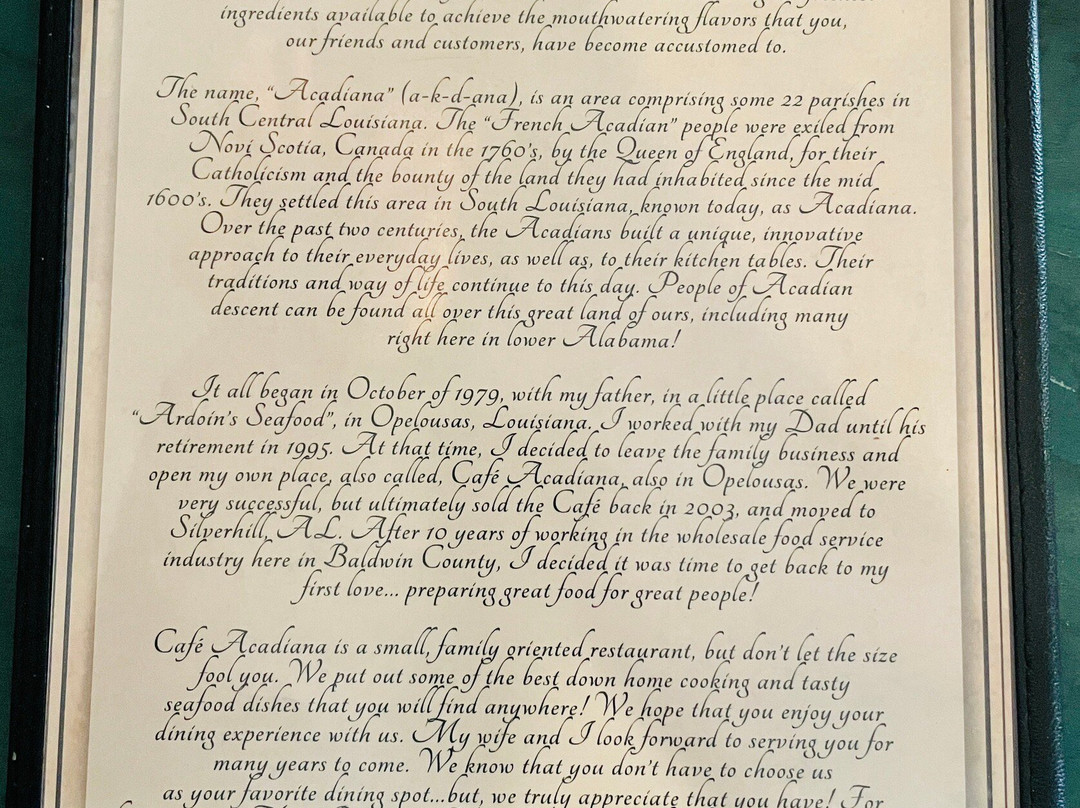 ingredients available to achieve the mouthwatering flavors that you,
our friends and customers, have become accustomed to.
The name, "Acadiana" (a-k-d-ana), is an area comprising some 22 parishes in
South Central Louisiana. The "French Acadian" people were exiled from
Novi Scotia, Canada in the 1760's, by the Queen of England, for their
Catholicism and the bounty of the land they had inhabited since the mid
1600's. They settled this area in South Louisiana, known today, as Acadiana.
Over the past two centuries, the Acadians built a unique, innovative
approach to their everyday lives, as well as, to their kitchen tables. Their
traditions and way of life continue to this day. People of Acadian
descent can be found all over this great land of ours, including many
right here in lower Alabama!
It all began in October of 1979, with my father, in a little place called
"Ardoin's Seafood", in Opelousas, Louisiana. I worked with my Dad until his
retirement in 1995. At that time, I decided to leave the family business and
open my own place, also called, Café Acadiana, also in Opelousas. We were
very successful, but ultimately sold the Café back in 2003, and moved to
Silverhill, AL. After 10 years of working in the wholesale food service
industry here in Baldwin County, I decided it was time to get back to my
first love... preparing great food for great people!
Café Acadiana is a small, family oriented restaurant, but don't let the size
fool you. We put out some of the best down home cooking and tasty
seafood dishes that you will find anywhere! We hope that you enjoy your
dining experience with us. My wife and I look forward to serving you for
many years to come. We know that you don't have to choose us
as your favorite dining spot...but, we truly appreciate that you have! For